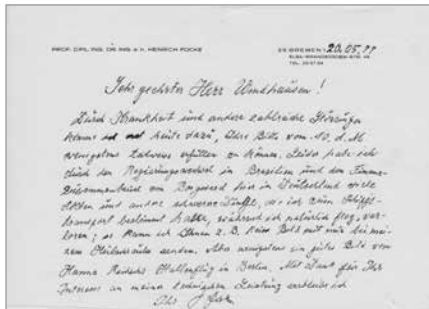 PROF. DIPL. ING. DR. ING. e. h. HENRICH FOCKE
28 BREMEN 1 20.05.77
TEL.
Sehr geehrter Herr Windhausen!
Durch Krankheit und andere zahlreiche Störungen
komme ich erst heute dazu, Ihre Bitte vom 10. d. M
wenigstens teilweise erfüllen zu können. Leider habe ich
durch den Regierungswechsel in Brasilien und den
Zusammenbruch von Borgward hier in Deutschland viele
Akten und andere schwere , die ich zum Schiffs-
transport bestimmt hatte, während ich natürlich flog, ver-
loren; so kann ich Ihnen z. B. kein Bild mit mir bei
senden. Aber wenigstens ein gutes Bild von
Hanna Reitschs Hallenflug in Berlin. Mit Dank für Ihr
Interesse an meiner Leistung verbleibe ich
Ihr